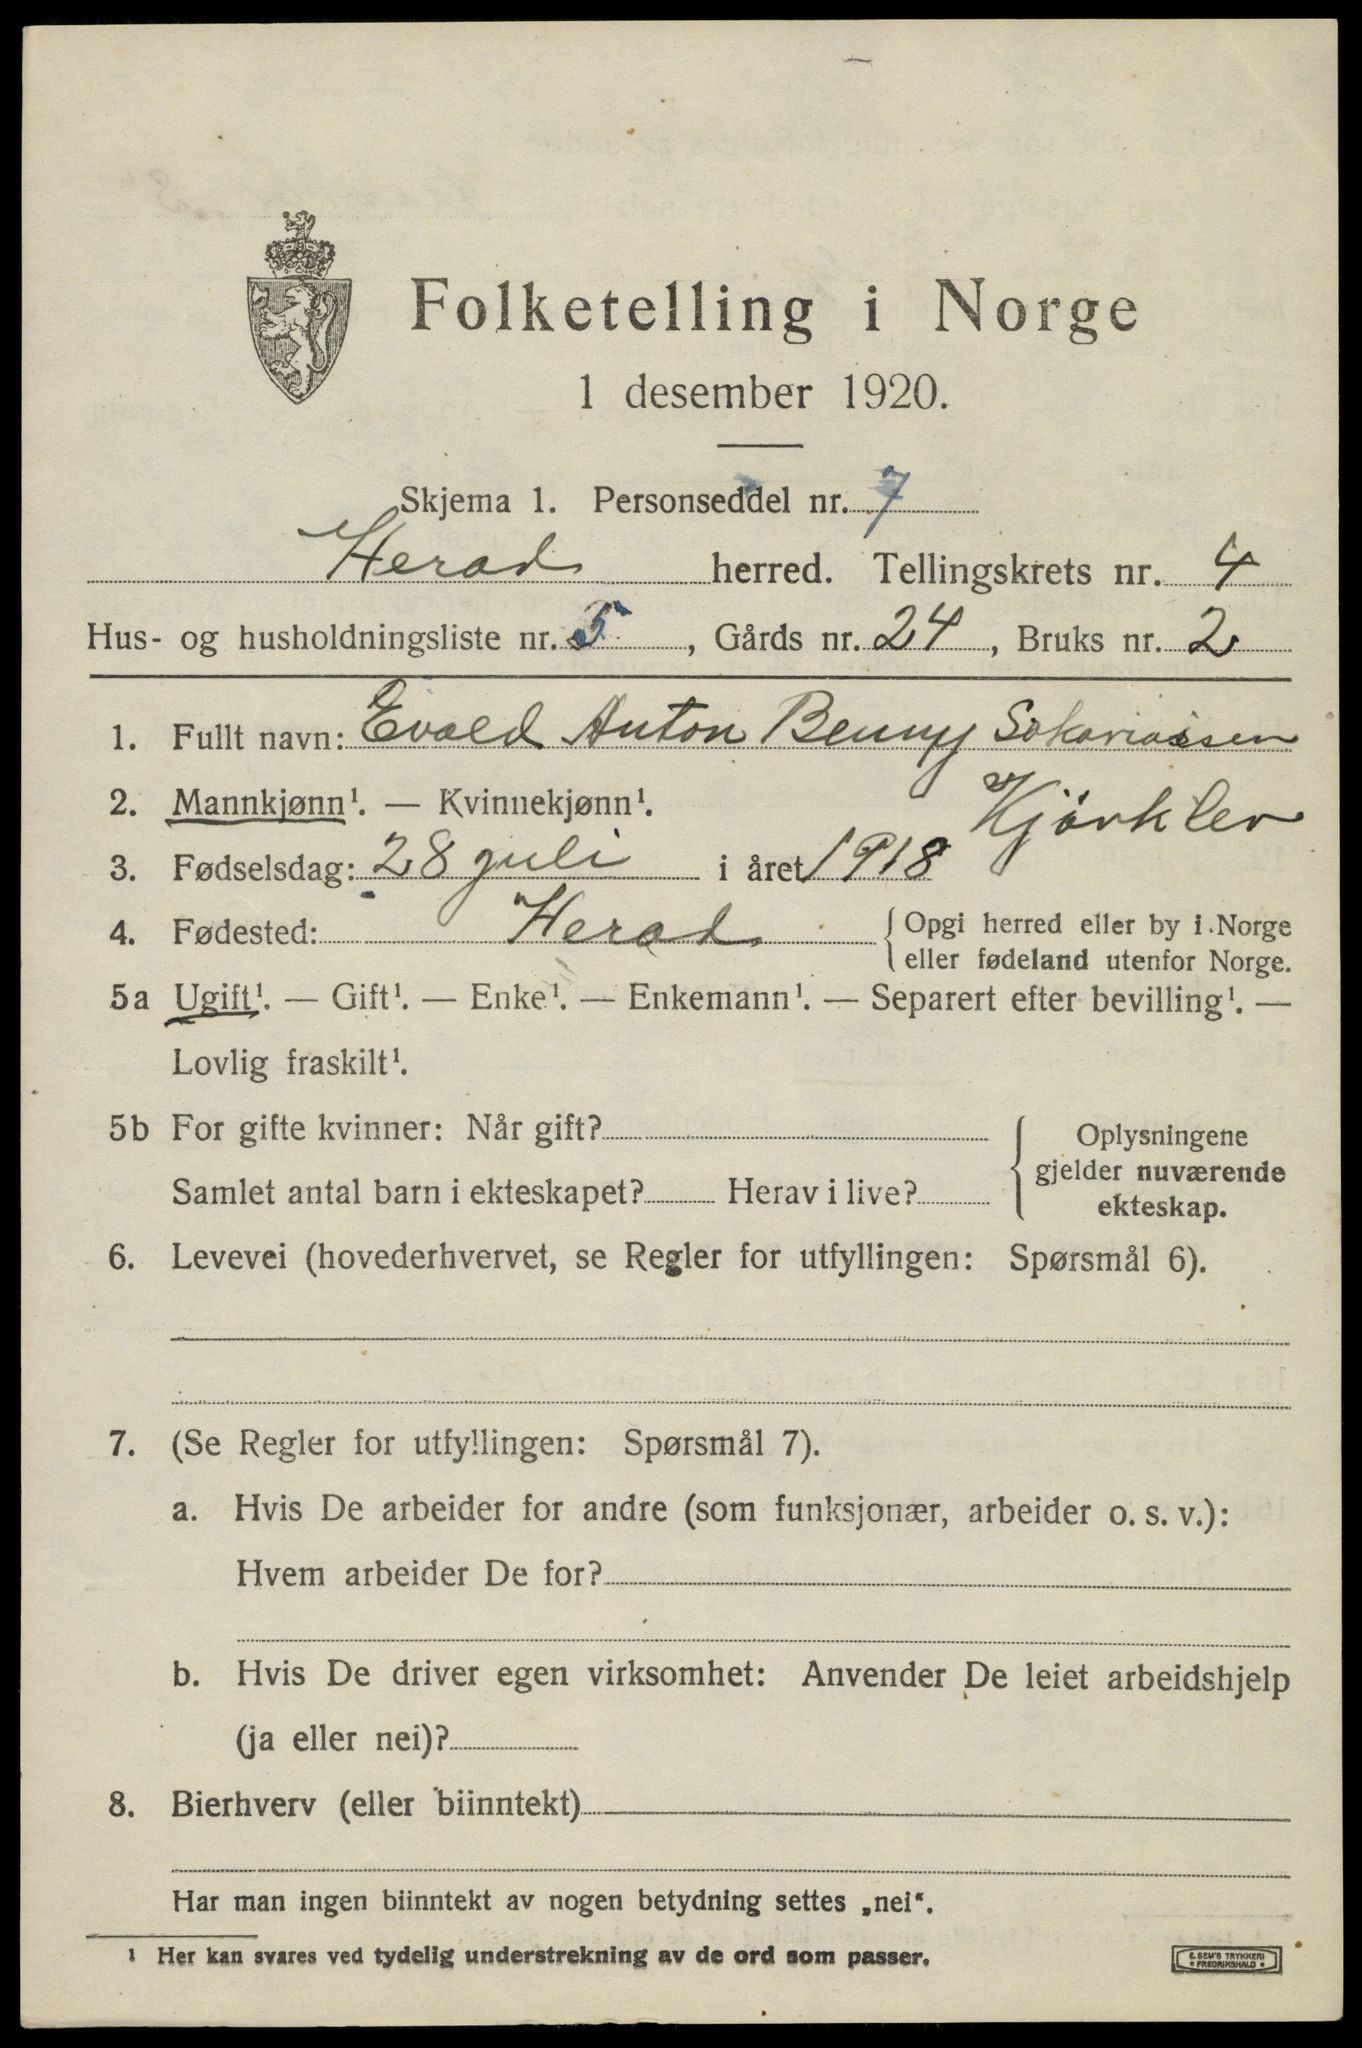 Folketelling i Norge
1 desember 1920.
Skjema 1. Personseddel nr. 7
Herad herred. Tellingskrets nr. 4
Hus- og husholdningsliste nr. 5, Gårds nr. 24, Bruks nr. 2
1. Fullt navn: Evald Anton Benny Sakariassen
Kjörklev
2. Mannkjønn¹. — Kvinnekjønn¹.
3. Fødselsdag: 28 juli i året 1918
4. Fødested: Herad {Opgi herred eller by i Norge
eller fødeland utenfor Norge.
5a Ugift¹. — Gift¹. — Enke¹. — Enkemann¹. — Separert efter bevilling¹. —
Lovlig fraskilt¹.
5b For gifte kvinner: Når gift?
Samlet antal barn i ekteskapet? Herav i live?
{Oplysningene
gjelder nuværende
ekteskap.
6. Levevei (hovederhvervet, se Regler for utfyllingen: Spørsmål 6).
7. (Se Regler for utfyllingen: Spørsmål 7).
a. Hvis De arbeider for andre (som funksjonær, arbeider o. s. v.):
Hvem arbeider De for?
b. Hvis De driver egen virksomhet: Anvender De leiet arbeidshjelp
(ja eller nei)?
8. Bierhverv (eller biinntekt)
Har man ingen biinntekt av nogen betydning settes „nei“.
¹ Her kan svares ved tydelig understrekning av de ord som passer.
E. SEM'S TRYKKERI
• FREDRIKSHALD •